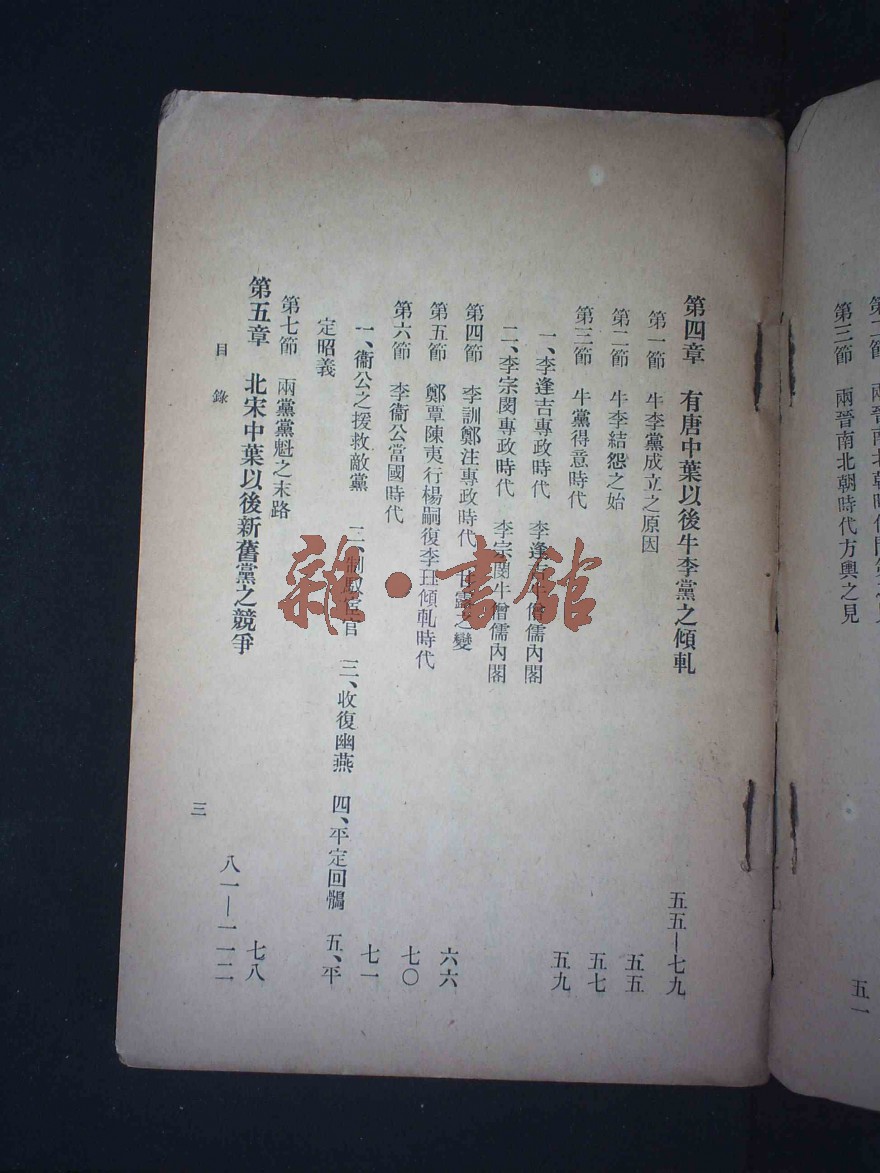 第三節　兩晉南北朝時代方輿之見　五一
第四章　有唐中葉以後牛李黨之傾軋　五五—七九
第一節　牛李黨成立之原因　五五
第二節　牛李結怨之始　五七
第三節　牛黨得意時代　五九
一、李逢吉專政時代　李逢吉牛僧儒內閣
二、李宗閔專政時代　李宗閔牛僧儒內閣
第四節　李訓鄭注專政時代　甘露之變　六六
第五節　鄭覃陳夷行楊嗣復李玨傾軋時代　七〇
第六節　李衞公當國時代　七一
一、衞公之援救敵黨　二、制馭宦官　三、收復幽燕　四、平定回鶻　五、平
定昭義
第七節　兩黨黨魁之末路　七八
第五章　北宋中葉以後新舊黨之競爭　八一—一一二
目錄
三
雜·書館